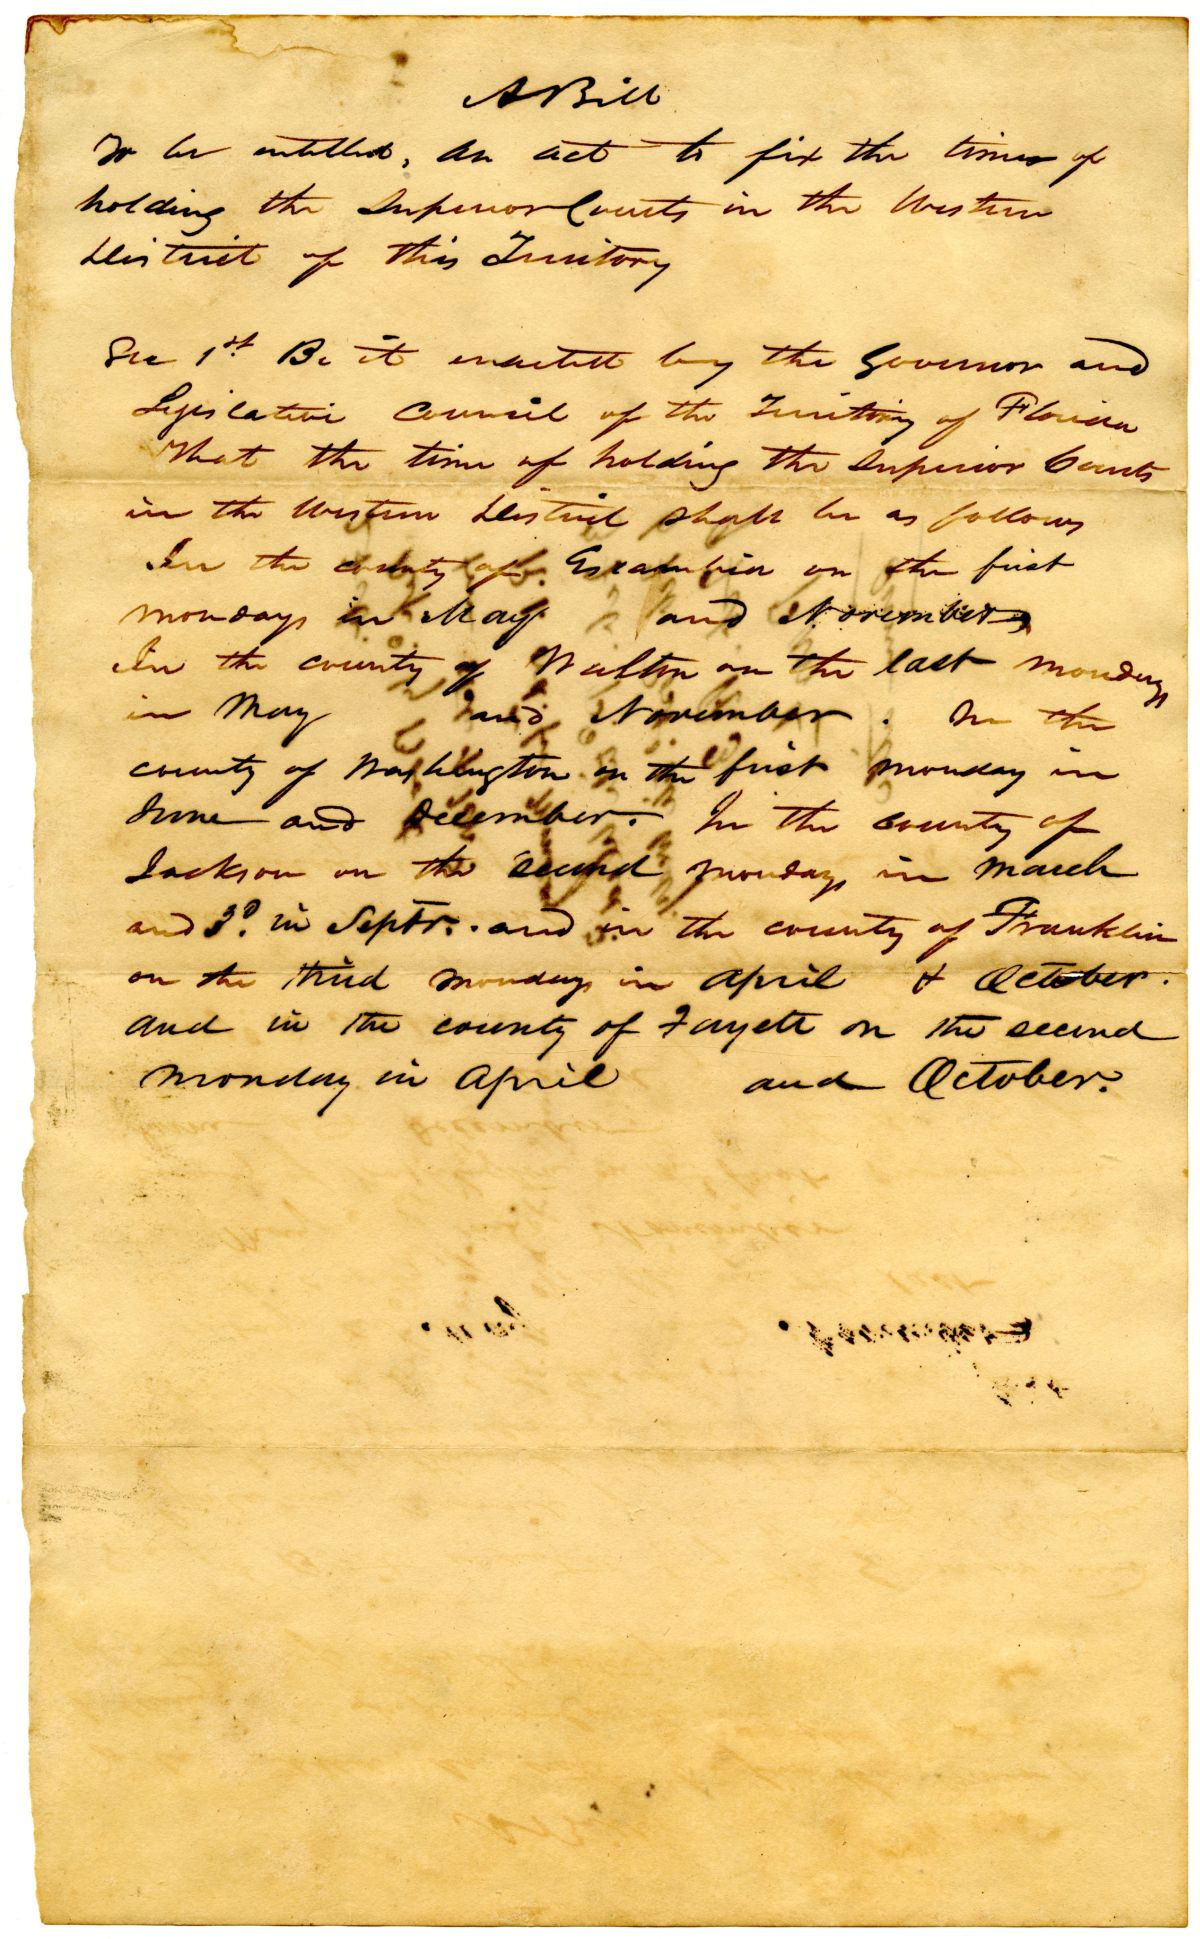 A Bill
To be entitled, An act to fix the times of
holding the Superior Courts in the Western
District of this Territory
Sec 1st. Be it enacted by the Governor and
Legislative Council of the Territory of Florida
That the time of holding the Superior Courts
in the Western District shall be as follows
In the county of Escambia on the first
mondays in May and November,
In the county of Walton on the last mondays
in May and November. In the
county of Washington on the first monday in
June and December. In the county of
Jackson on the second mondays in march
and 3d. in Septr. and in the county of Franklin
on the third mondays in april & October.
and in the county of Fayett on the second
monday in april and October.